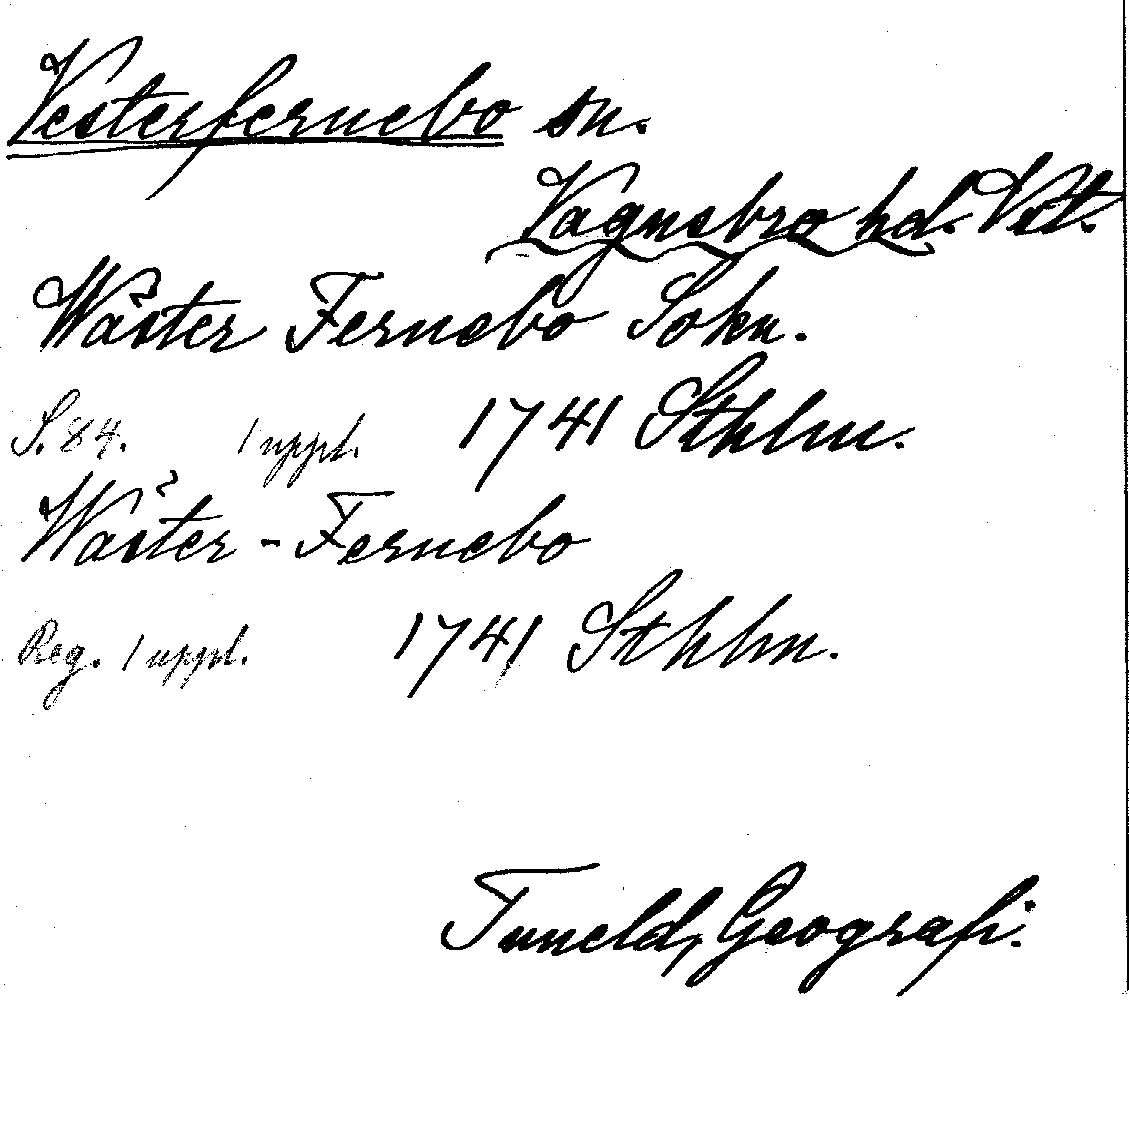 Vesterfernebo sn.
Vagnsbro hd. Vstt.
Wäster Fernebo Sokn.
S. 84. 1 uppl. 1741 Sthlm.
Wäster - Fernebo
Reg. 1 uppl. 1741 Sthlm.
Tuneld, Geografi.